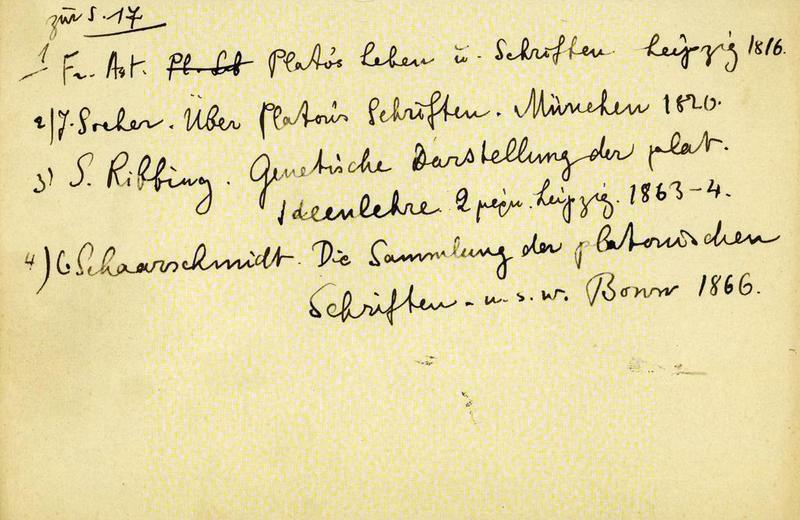 zur S. 17
1 Fr. Ast. Pl. Leb Plato's Leben u. Schriften Leipzig 1816.
2) J. Socher. Über Platon's Schriften. München 1820.
3) S. Ribbing. Genetische Darstellung der plat.
Ideenlehre 2 Leipzig. 1863-4.
4) C. Schaarschmidt. Die Sammlung der platonischen
Schriften - u. s. w. Bonn 1866.